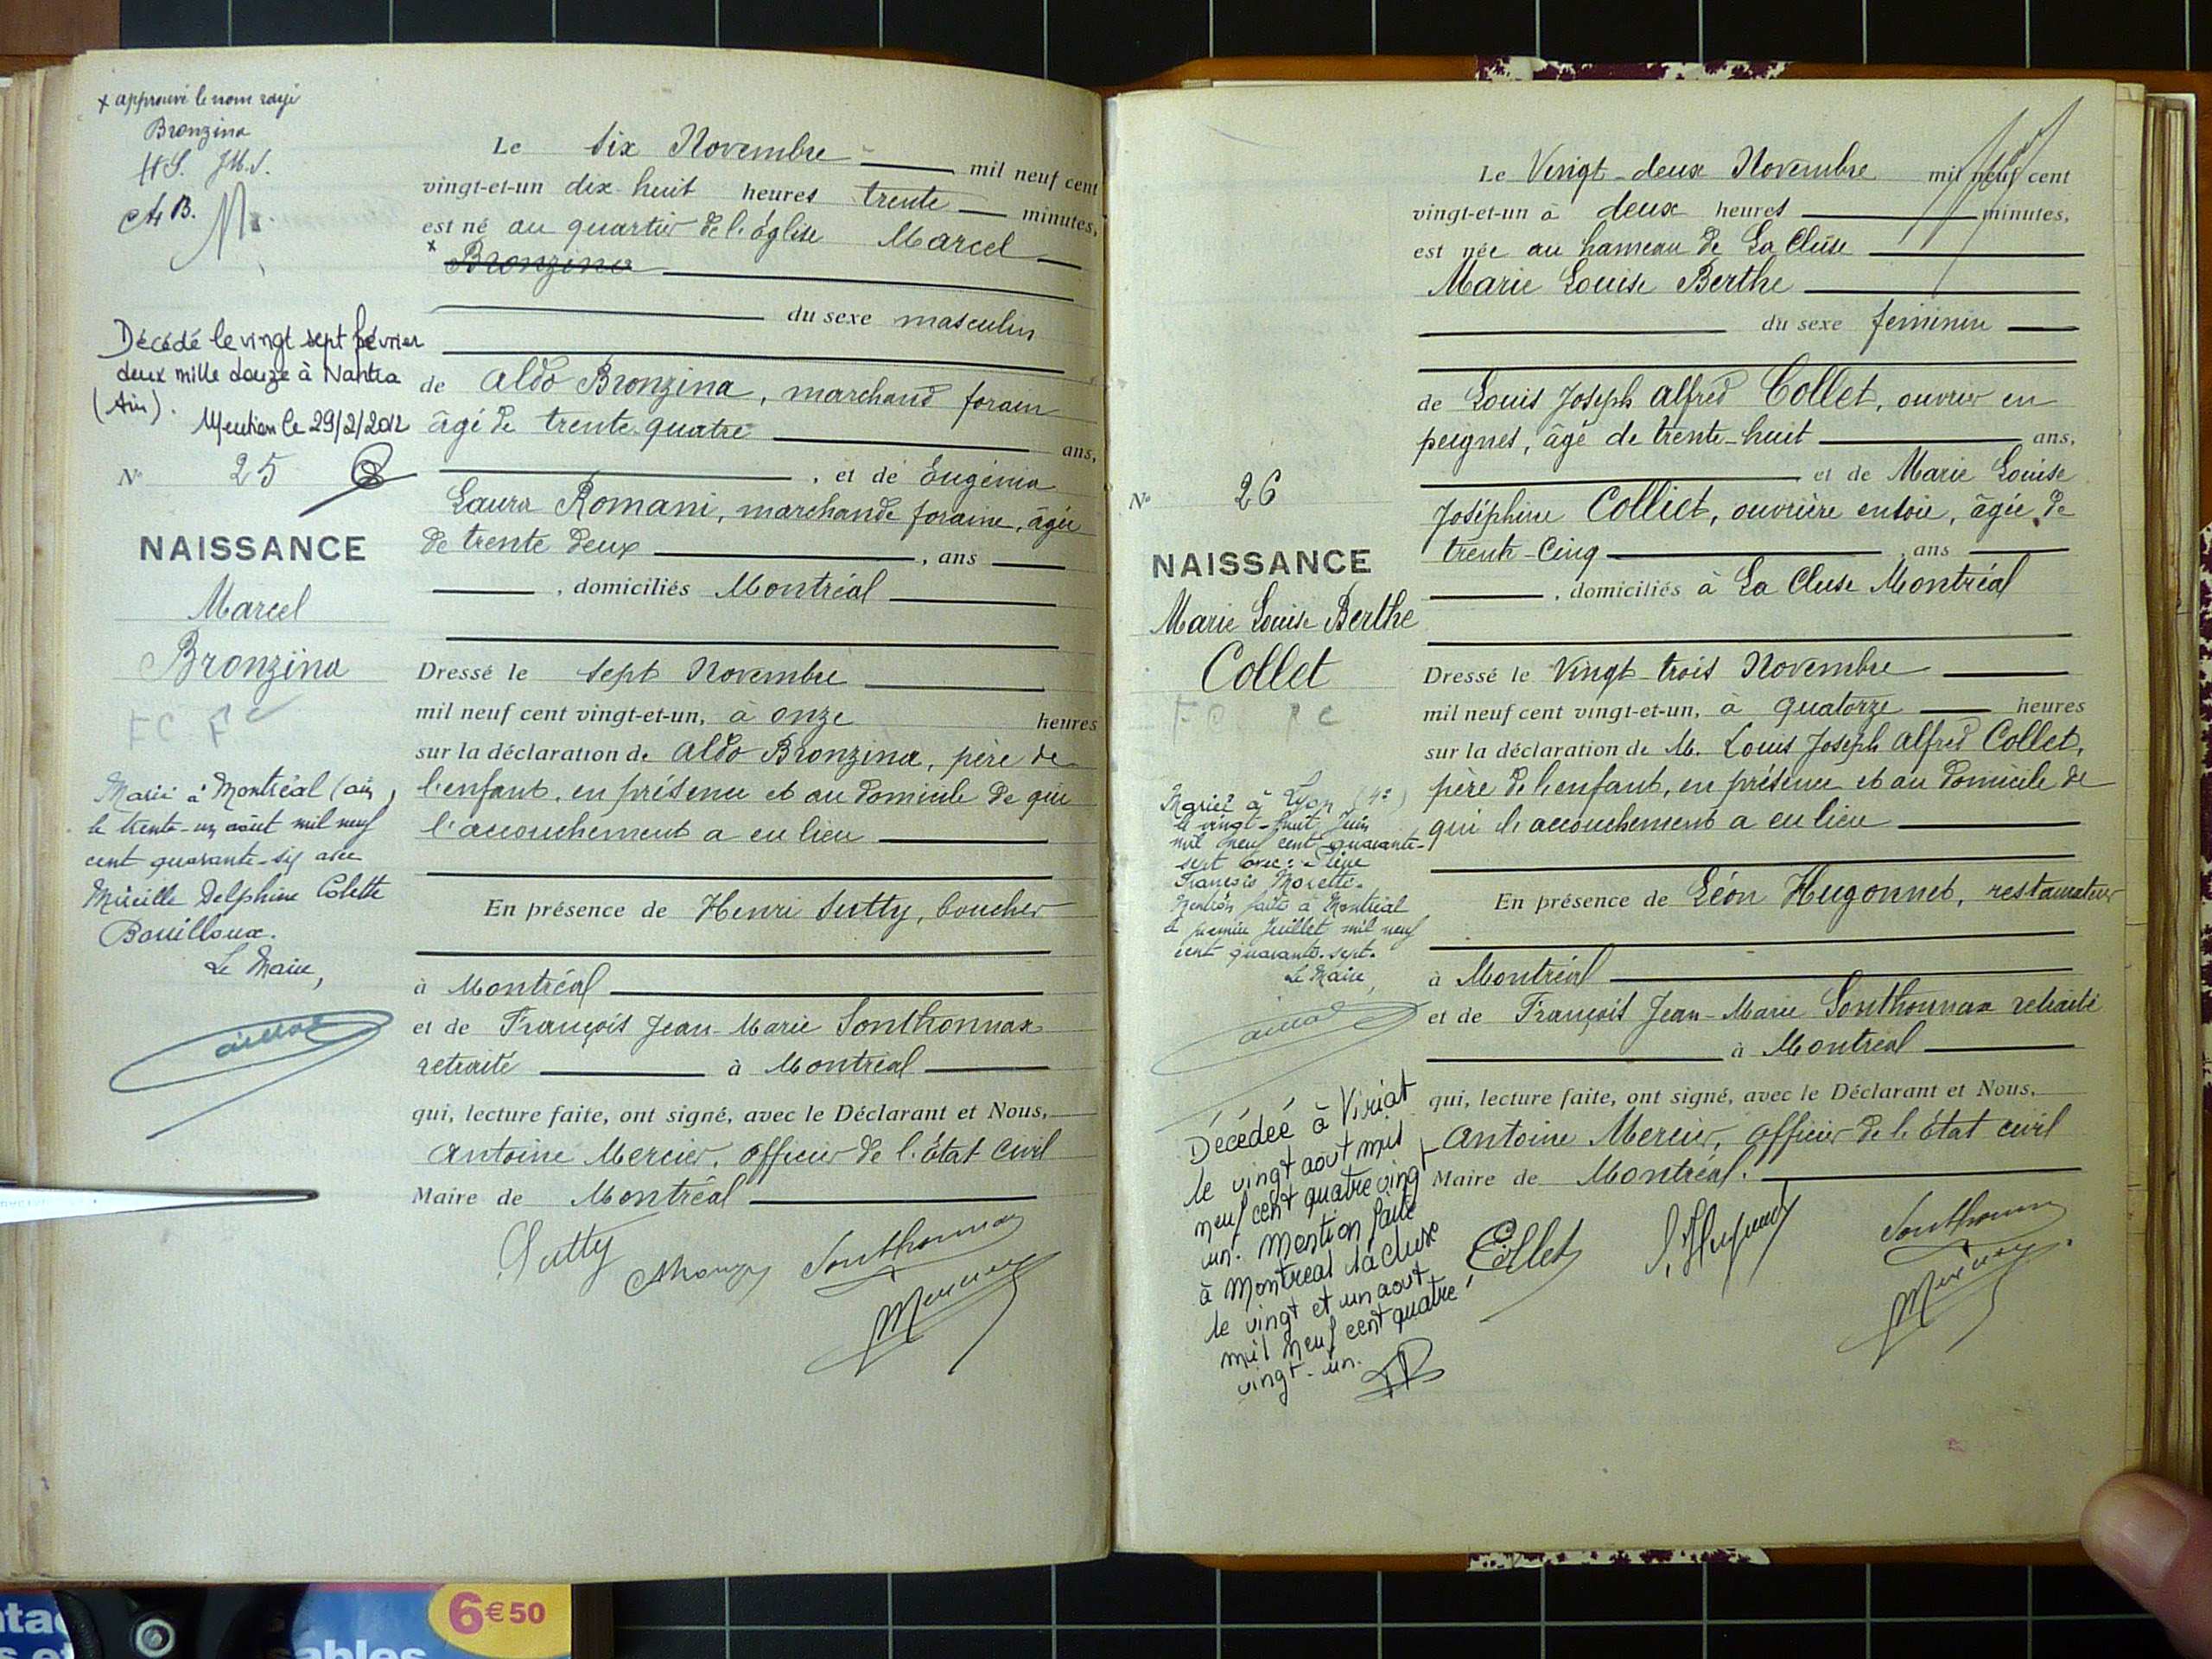 x approuvé le nom rayé
Bronzina
H S. J M. S.
A B.
Décédé le vingt sept février
deux mille douze à Nantua
(Ain).
Mention le 29/2/2012
N° 25
NAISSANCE
Marcel
Bronzina
FC
Marié à Montréal (ain)
le trente-un août mil neuf
cent quarante-six avec
Mireille Delphine Colette
Bouilloux.
Le Maire,
Le Six Novembre mil neuf cent
vingt-et-un dix-huit heures trente minutes,
est né au quartier de l'église Marcel
x Bronzina
du sexe masculin
de Aldo Bronzina, marchand forain
âgé de trente-quatre ans,
, et de Eugénia
Laura Romani, marchande foraine, âgée
de trente deux , ans
, domiciliés Montréal
Dressé le Sept Novembre
mil neuf cent vingt-et-un, à onze heures
sur la déclaration de Aldo Bronzina, père de
l'enfant, en présence et au domicile de qui
l'accouchement a eu lieu
En présence de Henri Sutty, boucher
à Montréal
et de François Jean-Marie Sonthonnax
retraité à Montréal
qui, lecture faite, ont signé, avec le Déclarant et Nous,
Antoine Mercier, Officier de l'État Civil
Maire de Montréal
Sutty Sonthonnax
Mercier
N° 26
NAISSANCE
Marie Louise Berthe
Collet
Mariée à Lyon (4e)
le vingt-huit Juin
mil neuf cent quarante-
sept avec:
François Moretti.
Mention faite à Montréal
le premier Juillet mil neuf
cent quarante-sept.
Le Maire,
Décédée à Viriat
le vingt aout mil
neuf cent quatre vingt
un. Mention faite
à Montreal la cluse
le vingt et un aout
mil neuf cent quatre
vingt-un.
Le Vingt-deux Novembre mil neuf cent
vingt-et-un à deux heures minutes,
est née au hameau de La Cluse
Marie Louise Berthe
du sexe feminin
de Louis Joseph Alfred Collet, ouvrier en
peignes, âgé de trente-huit ans,
et de Marie Louise
Joséphine Colliet, ouvrière en soie, âgée de
trente-Cinq , ans
, domiciliés à La Cluse Montréal
Dressé le Vingt-trois Novembre
mil neuf cent vingt-et-un, à quatorze heures
sur la déclaration de M. Louis Joseph Alfred Collet,
père de l'enfant, en présence et au domicile de
qui l'accouchement a eu lieu
En présence de Léon Hugonnet, restaurateur
à Montréal
et de François Jean-Marie Sonthonnax retraité
à Montréal
qui, lecture faite, ont signé, avec le Déclarant et Nous,
Antoine Mercier, Officier de l'État civil
Maire de Montréal.
Collet L. Hugonnet Sonthonnax
Mercier
6€50
ables